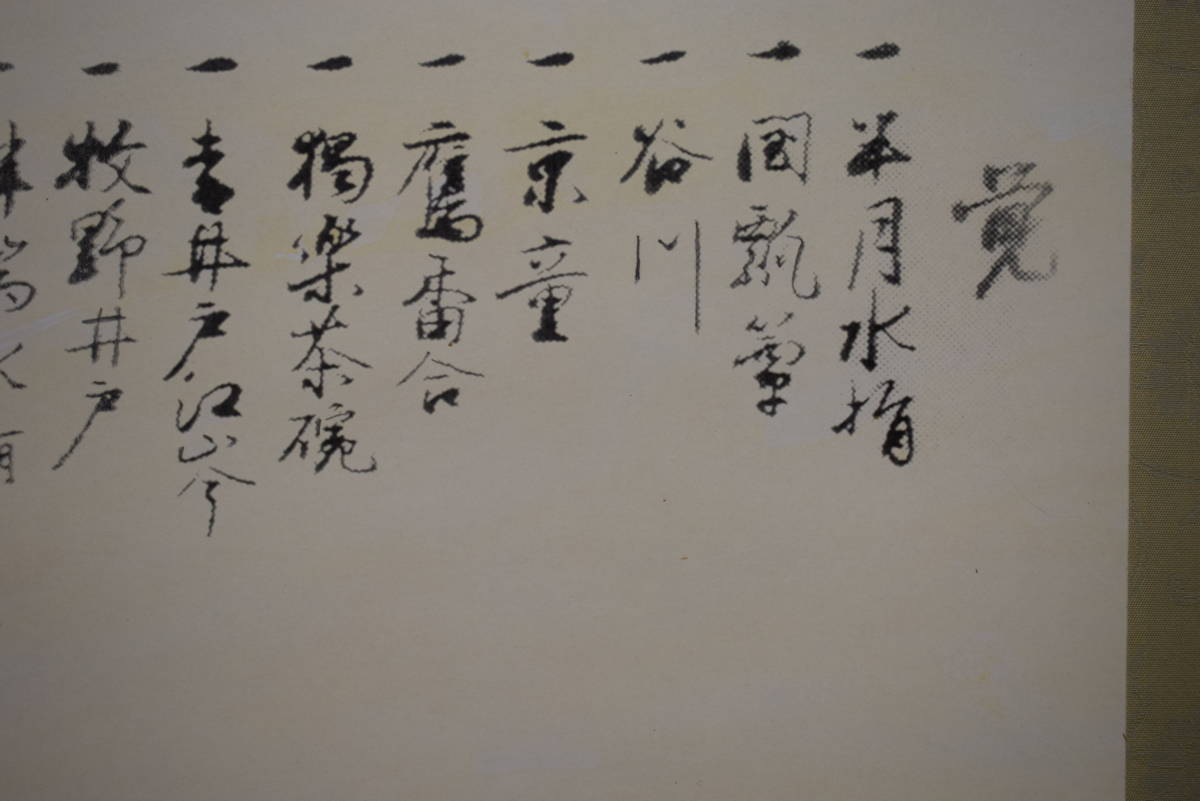 覚
一 半月水指
一 閑瓢箪
一 谷川
一 京童
一 鷹番合
一 獨楽茶碗
一 青井戸 江山今
一 牧野井戸